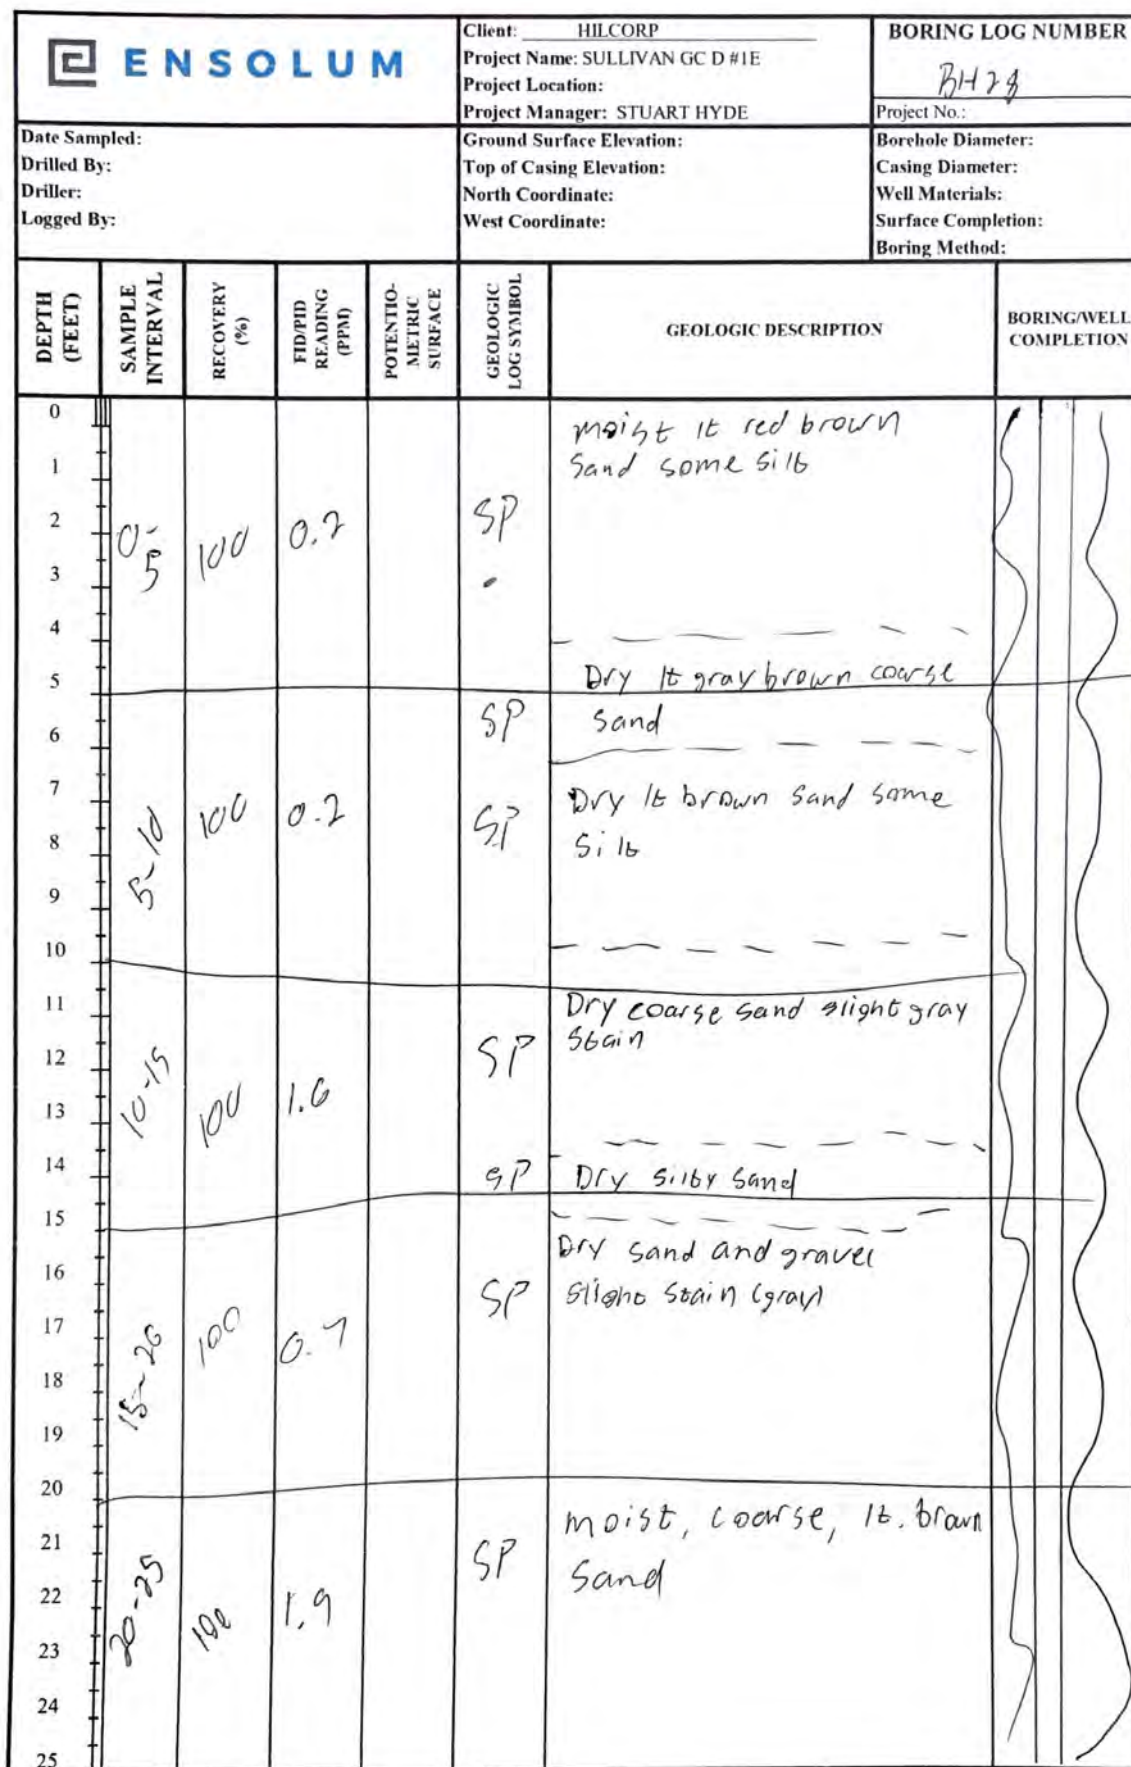 ENSOLUM
Client: HILCORP
Project Name: SULLIVAN GC D #1E
Project Location:
Project Manager: STUART HYDE
BORING LOG NUMBER
BH28
Project No.:
Date Sampled:
Drilled By:
Driller:
Logged By:
Ground Surface Elevation:
Top of Casing Elevation:
North Coordinate:
West Coordinate:
Borehole Diameter:
Casing Diameter:
Well Materials:
Surface Completion:
Boring Method:
DEPTH (FEET)
SAMPLE INTERVAL
RECOVERY (%)
FID/PID READING (PPM)
POTENTIO-METRIC SURFACE
GEOLOGIC LOG SYMBOL
GEOLOGIC DESCRIPTION
BORING/WELL COMPLETION
0
moist lt red brown
1
sand some silt
2
0-5
100
0.2
SP
3
4
5
Dry lt gray brown coarse
6
SP
sand
7
5-10
100
0.2
SP
Dry lt brown sand some
8
silt
9
10
11
Dry coarse sand slight gray
stain
12
10-15
100
1.6
SP
13
14
SP
Dry silty sand
15
Dry sand and gravel
16
SP
slight stain (gray)
17
15-20
100
0.7
18
19
20
21
moist, coarse, lt. brown
SP
sand
22
20-25
100
1.9
23
24
25